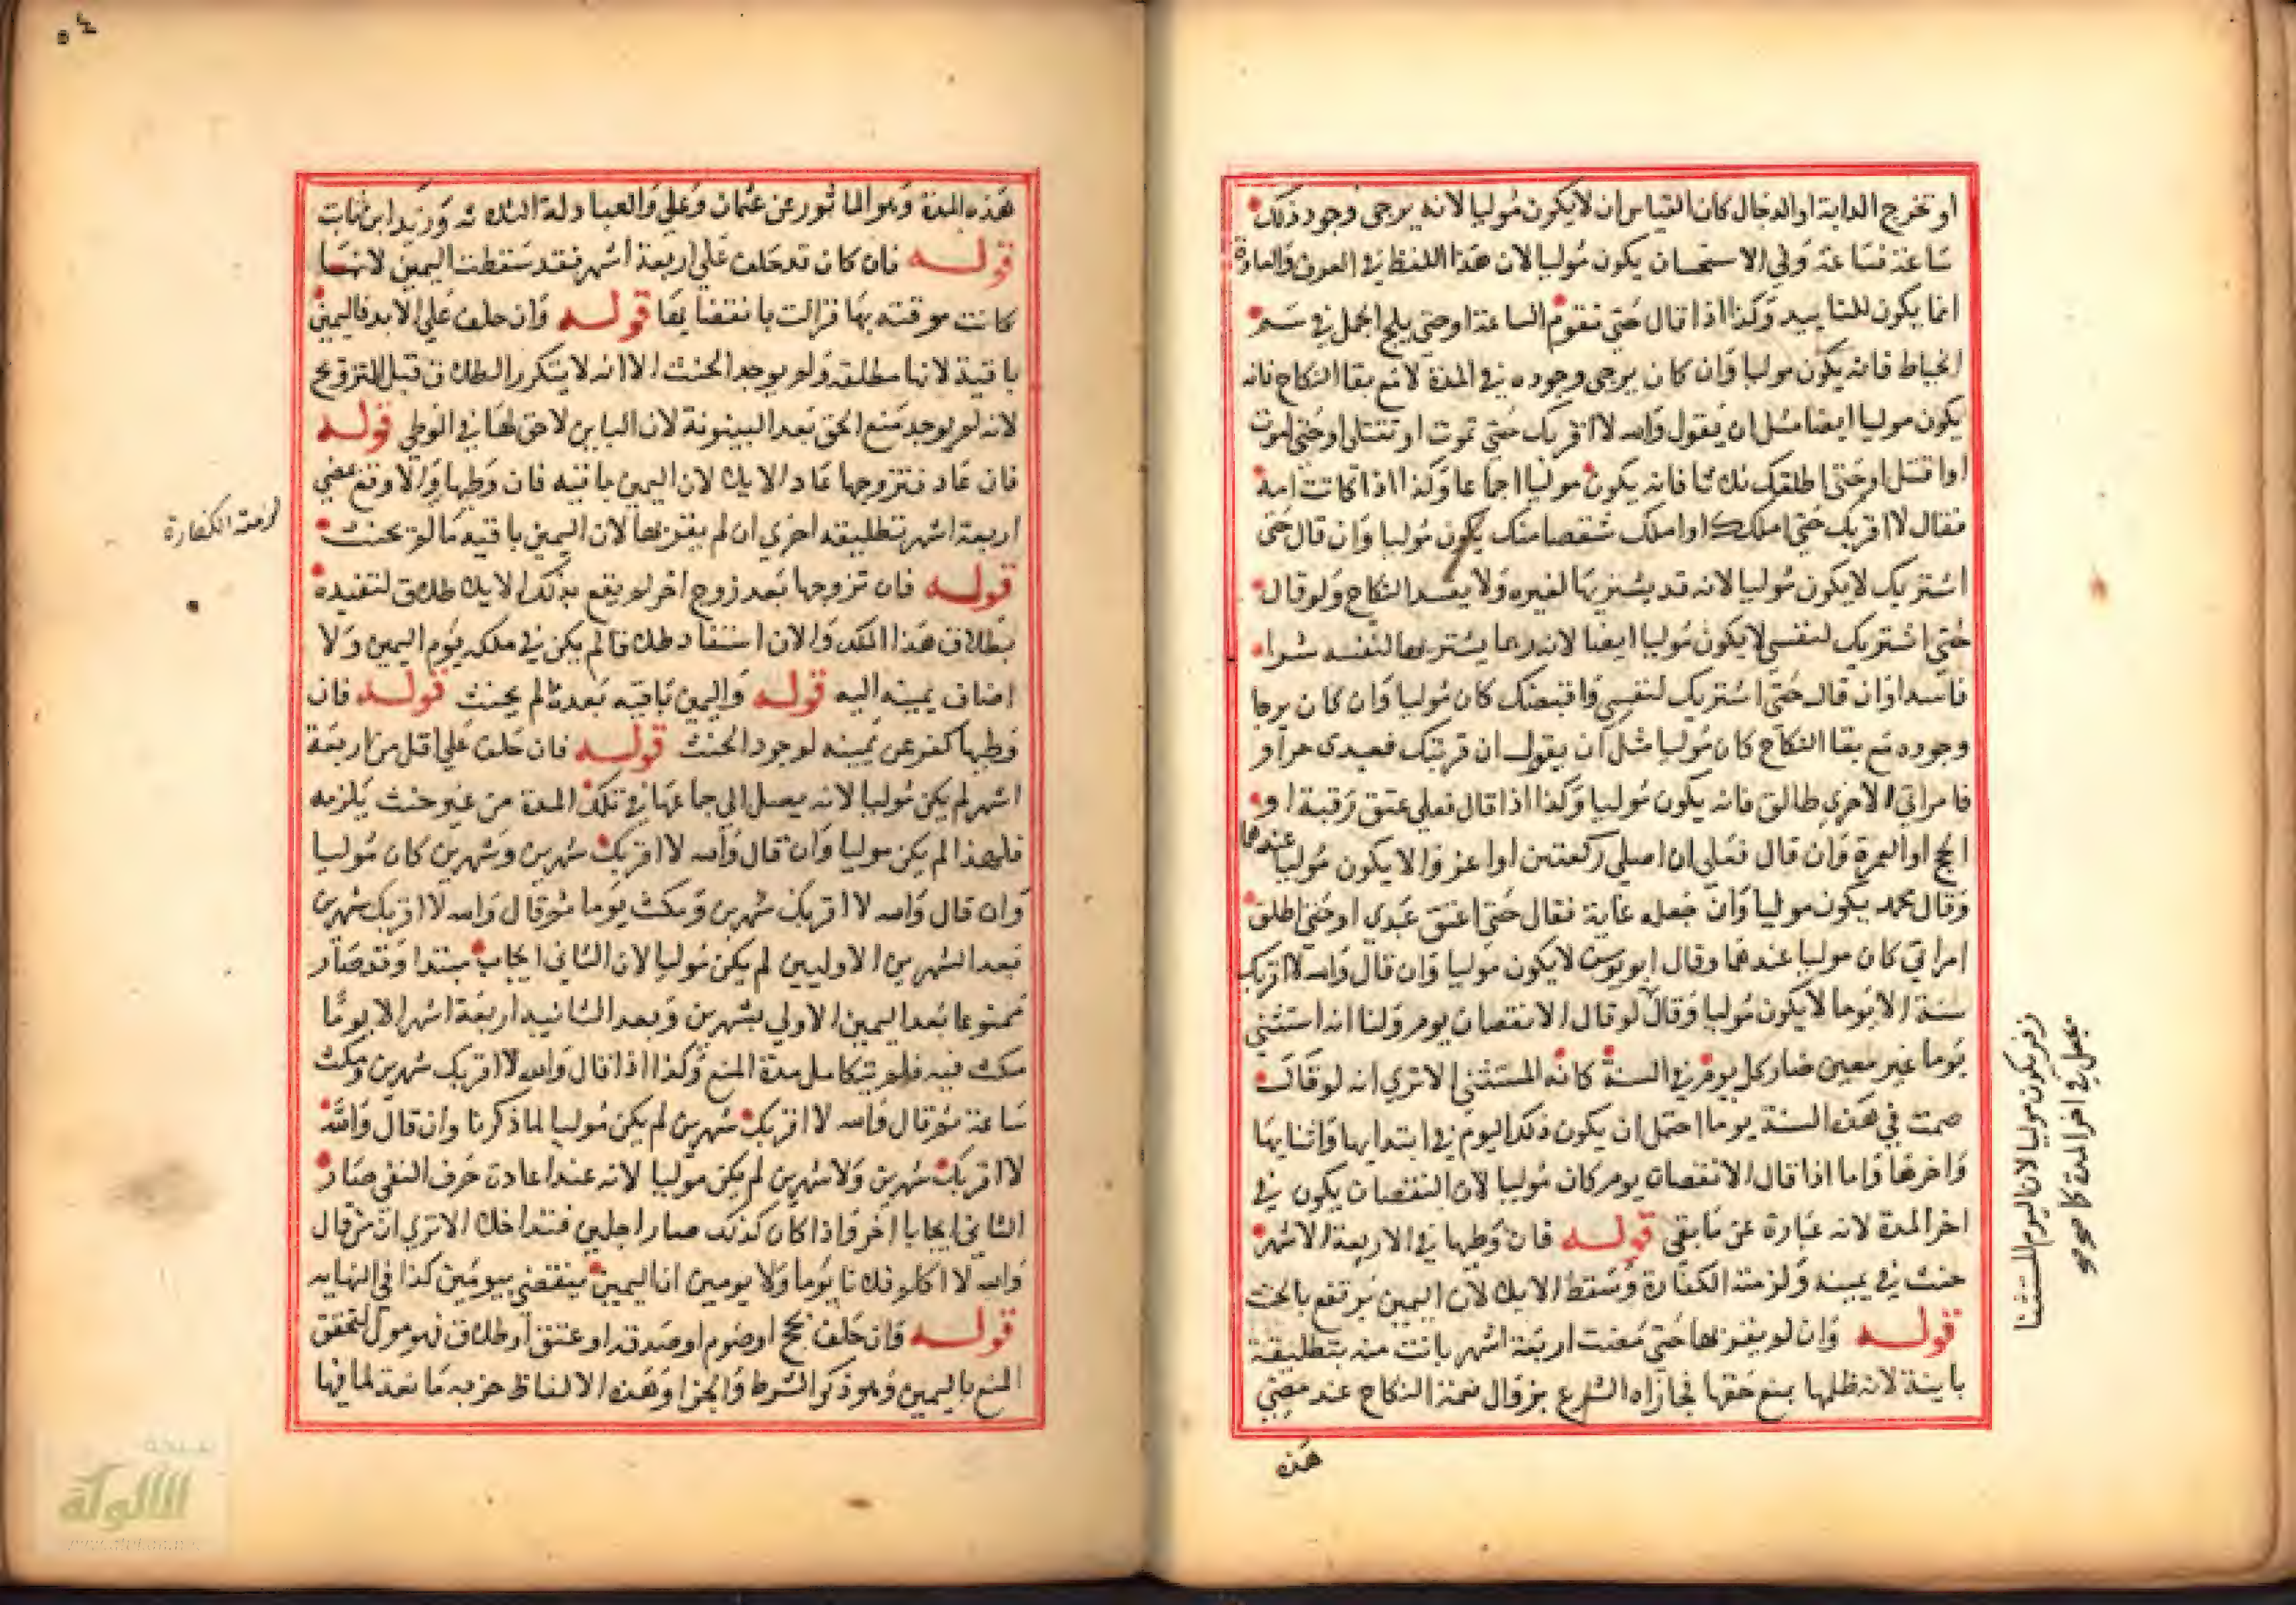 او تخرج الدابة او الدجال كان القياس ان لا يكون موليا لانه يرجى وجود ذلك
ساعة فساعة وفي الاستحسان يكون موليا لان هذا اللفظ في العرف والعادة
انما يكون للتابيد وكذا اذا قال حتى تقوم الساعة او حتى يلج الجمل في سم
الخياط فانه يكون موليا وان كان يرجى وجوده في المدة لا مع بقا النكاح فانه
يكون موليا ايضا مثل ان يقول والله لا اقربك حتى تموت او تقتلى او حتى اموت
او اقتل او حتى اطلقك ثلاثا فانه يكون موليا اجماعا وكذا اذا كانت امة
فقال لا اقربك حتى املكك او املك شقصا منك يكون موليا وان قال حتى
اشتريك لا يكون موليا لانه قد يشتريها لغيره ولا يفسد النكاح ولو قال
حتى اشتريك لنفسي لا يكون موليا ايضا لانه ربما يشتريها لنفسه شراء
فاسدا وان قال حتى اشتريك لنفسي واقبضك كان موليا وان كان يرجا
وجوده مع بقا النكاح كان موليا مثل ان يقول ان قربتك فعبدى حر او
فامراتي الاخرى طالق فانه يكون موليا وكذا اذا قال فعلي عتق رقبة او
الحج او العمرة وان قال فعلي ان اصلي ركعتين او اغزوا لا يكون موليا عندهما
وقال محمد يكون موليا وان جعله غاية فقال حتى اعتق عبدي او حتى اطلق
امراتي كان موليا عندهما وقال ابو يوسف لا يكون موليا وان قال والله لا اقربك
سنة الا يوما لا يكون موليا وقال لو قال الا نقصان يوم ولنا انه استثنى
يوما غير معين فصار كل يوم في السنة كانه المستثنى الا تري انه لو قال
صمت في هذه السنة يوما احتمل ان يكون ذلك اليوم في ابتدايها واثنايها
واخرها واما اذا قال الا نقصان يوم كان موليا لان النقصان يكون في
اخر المدة لانه عبارة عن ما بقي قوله فان وطيها في الاربعة الاشهر
حنث في يمينه ولزمته الكفارة وسقط الايلا لان اليمين يرتفع بالحنث
قوله وان لم يقربها حتى مضت اربعة اشهر بانت منه بتطليقة
باينة لانه ظلمها بمنع حقها فجازاه الشارع بزوال نعمة النكاح عند مضي
هذه
زفر يكون موليا لان اليوم المستثنا
يجعل في اخر المدة كا صح
هذه المدة وهو الماثور عن عثمان وعلي والعبادلة الثلاثة وزيد ابن ثابت
قوله فان كان قد حلف علي اربعة اشهر فقد سقطت اليمين لانها
كانت موقتة بها فزالت بانقضايها قوله وان حلف علي الابد فاليمين
باقية لانها مطلقة ولم يوجد الحنث الا انه لا يتكرر الطلاق قبل التزويج
لانه لم يوجد منع الحق بعد البينونة لان الباين لا حق لها في الوطي قوله
فان عاد فتزوجها عاد الايلا لان اليمين باقيه فان وطيها والا وقع بمضي
اربعة اشهر تطليقة اخرى ان لم يقربها لان اليمين باقيه ما لم يحنث
لزمته الكفارة
قوله فان تزوجها بعد زوج اخر لم يقع بذلك الايلا طلاق لتقيده
بطلاق هذا الملك والان استفاد طلاقا لم يكن في ملكه يوم اليمين ولا
اضاف يمينه اليه قوله واليمين باقيه بعد ما لم يحنث قوله فان
وطيها كفر عن يمينه لوجود الحنث قوله فان حلف علي اقل من اربعة
اشهر لم يكن موليا لانه يصل الى جماعها في تلك المدة من غير حنث يلزمه
فلهذا لم يكن موليا وان قال والله لا اقربك شهرين وشهرين كان موليا
وان قال والله لا اقربك شهرين ومكث يوما ثم قال والله لا اقربك شهرين
بعد الشهرين الاوليين لم يكن موليا لان الثاني ايجاب مبتدا وقد صار
ممنوعا بعد اليمين الاولي بشهرين وبعد الثانية اربعة اشهر الا يوما
مكث فيه فلم تتكامل مدة المنع وكذا اذا قال والله لا اقربك شهرين ومكث
ساعة ثم قال والله لا اقربك شهرين لم يكن موليا لما ذكرنا وان قال والله
لا اقربك شهرين ولا شهرين لم يكن موليا لانه عند اعادة حرف النفي صار
الثاني ايجابا اخر واذا كان كذلك صارا اجلين فتداخلا الا تري ان من قال
والله لا اكلم فلانا يوما ولا يومين ان اليمين ينقضي بيومين كذا في النهايه
قوله فان حلف بحج او صوم او صدقة او عتق او طلاق فهو مول لتحقق
المنع باليمين وهو ذكر الشرط والجزا وهذه الالفاظ جزيه مانعة لما فيها
شبكة
الألوكة